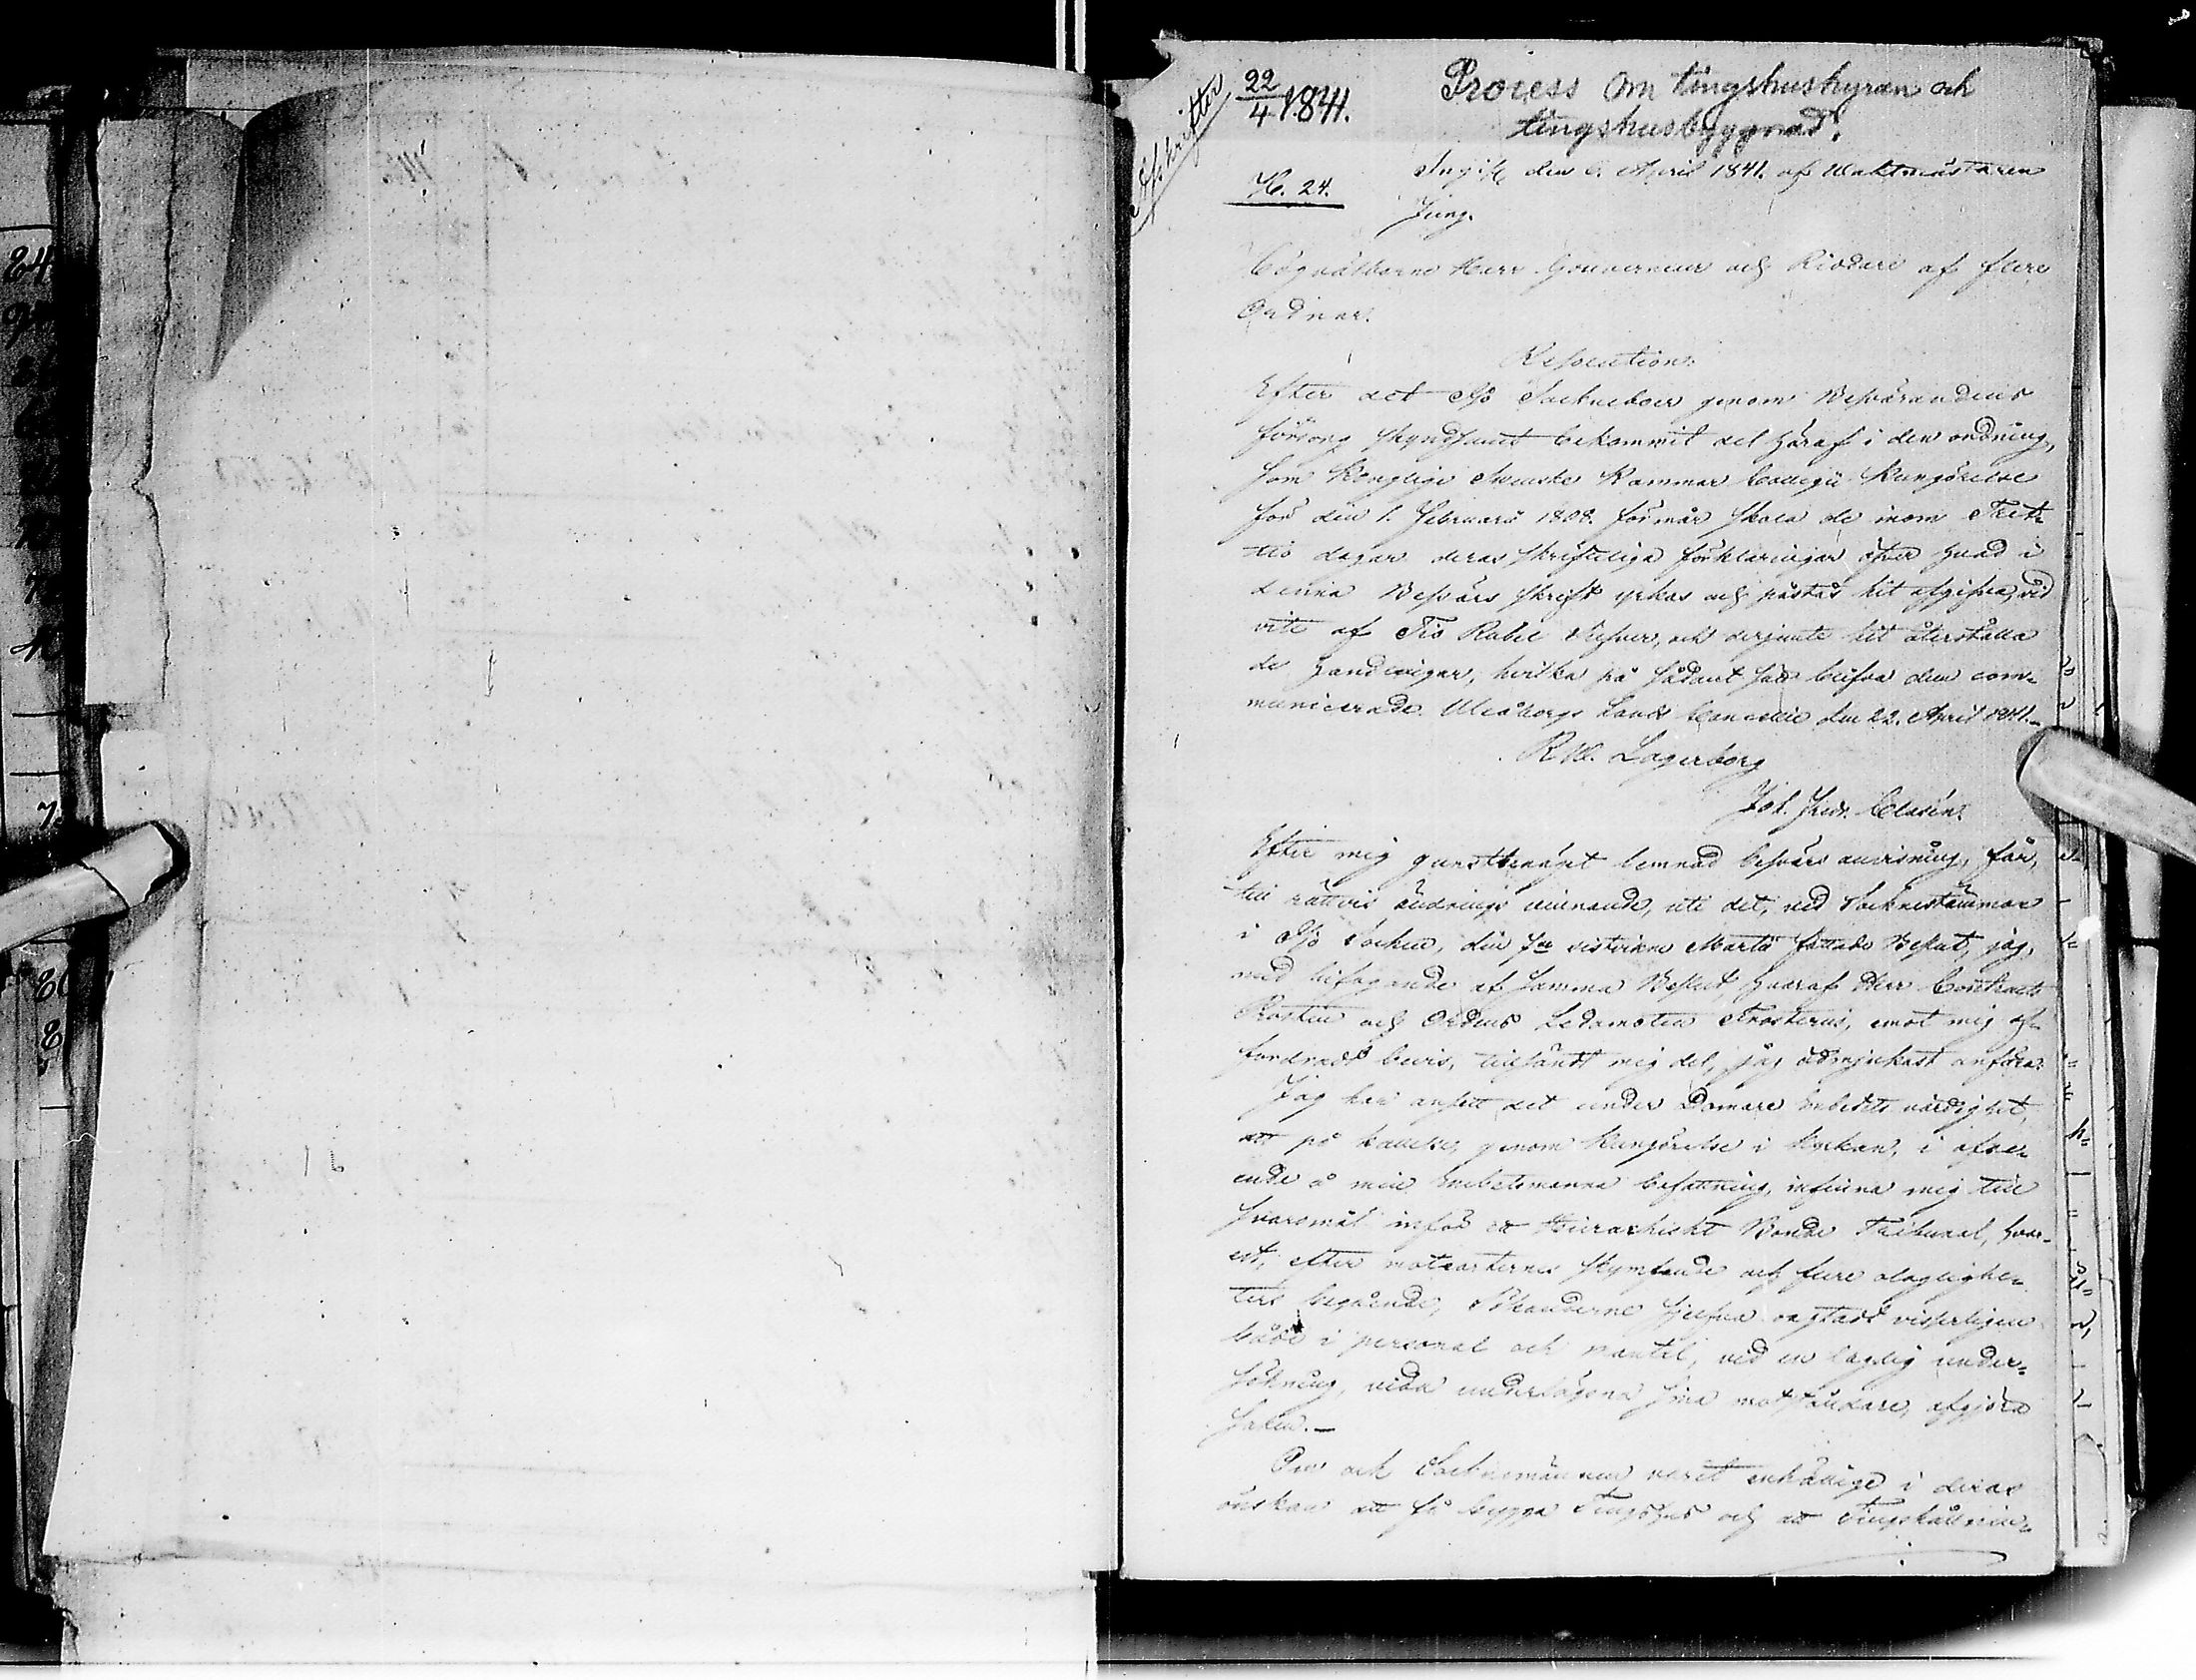 Afskrifter
22/4 1841.
Process om tingshushyran och
tingshusbyggnad.
N. 24.
Ingift den 6. April 1841. af Waktmästaren
Ljung.
Högvälborne Herr Gouverneur och Riddare af flere
Ordnar.
Resolution:
Efter det Ijo Sockneboer genom Besvärandens
försorg skyndsamt bekommit del häraf i den ordning,
som Kongliga Svenska Kammar Collegii Kungörelse
för den 1. Februarii 1808. förmår skola de inom Tret-
tio dagar deras skrifteliga förklaringar öfver hvad i
denna Besvärs skrift yrkas och påstås hit afgifva, vid
vite af Tio Rubel Silfver, och derjemte hit återställa
de handlingar, hvilka på sådant sätt blifva dem com-
municerade. Uleåborgs Lands Cancellie den 22. April 1841.
R. W. Lagerborg
Joh. Fredr. Clasén.
Efter mig gunstbenäget lemnad besvärs anvisning, får,
till rättvis ändrings vinnande, uti det, vid Socknestämman
i Ijo Socken, den 7de sistvikne Martii fattade Beslut, jag,
med bifogande af samma Beslut, hvaraf Herr Contracts
Prosten och Ordens Ledamoten Frosterus, emot mig af-
fordradt bevis, tillsändt mig del, jag ödmjukast anföra:
Jag har ansett det under Domare Embetets värdighet
att på kallelse, genom Kungörelse i Kyrkan, i afse-
ende å min Embetsmanna befattning, infinna mig till
svaromål inför et Hierarkiskt Bonde Tribunal, hvar-
est, efter motparternes skymfande och flere olaglighe-
ters begående, Sökanderne sjelfva
både i personal och mantal, vid en laglig under-
sökning, vida underlägsna sina motståndare, afgjöra
saken.
Om ock Socknemännen varit enhällige i deras
önskan att få bygga Tingshus och att Tingshållnin-